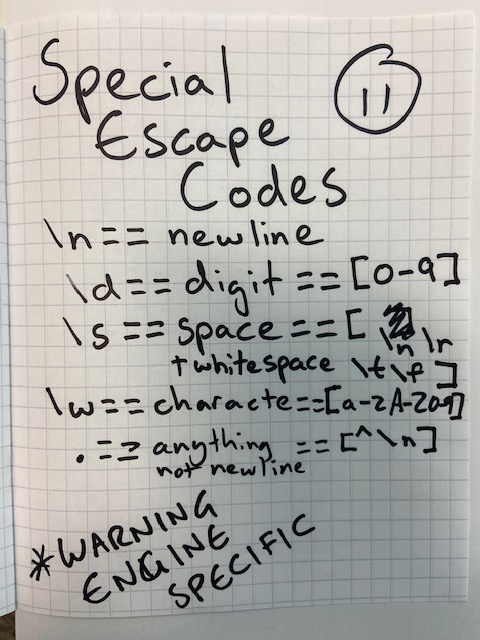 Special
11
Escape
Codes
\n == newline
\d == digit == [0-9]
\s == space == [ \n \r
+ whitespace \t \f ]
\w == characte == [a-zA-Z0-9]
. == anything == [^\n]
not newline
*WARNING
ENGINE
SPECIFIC